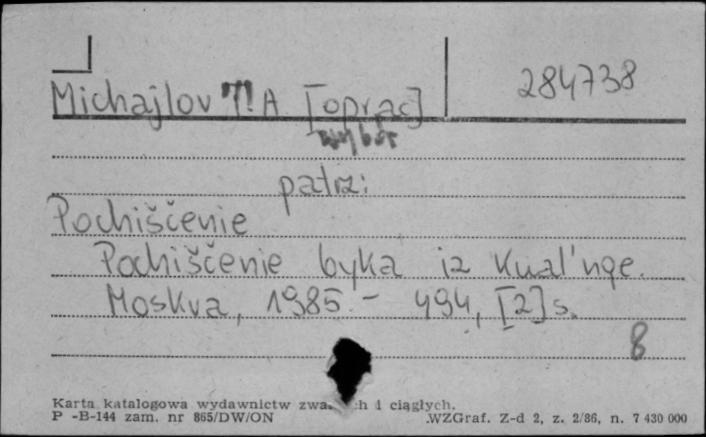 284738
Michajlov T. A. [oprac]
wybór
patrz:
Pochiščenie
Pochiščenie byka iz Kual'nge.
Moskva, 1985.- 494, [2]s.
8
Karta katalogowa wydawnictw ciągłych.
P -B-144 zam. nr 865/DW/ON
WZGraf. Z-d 2, z. 2/86, n. 7 430 000